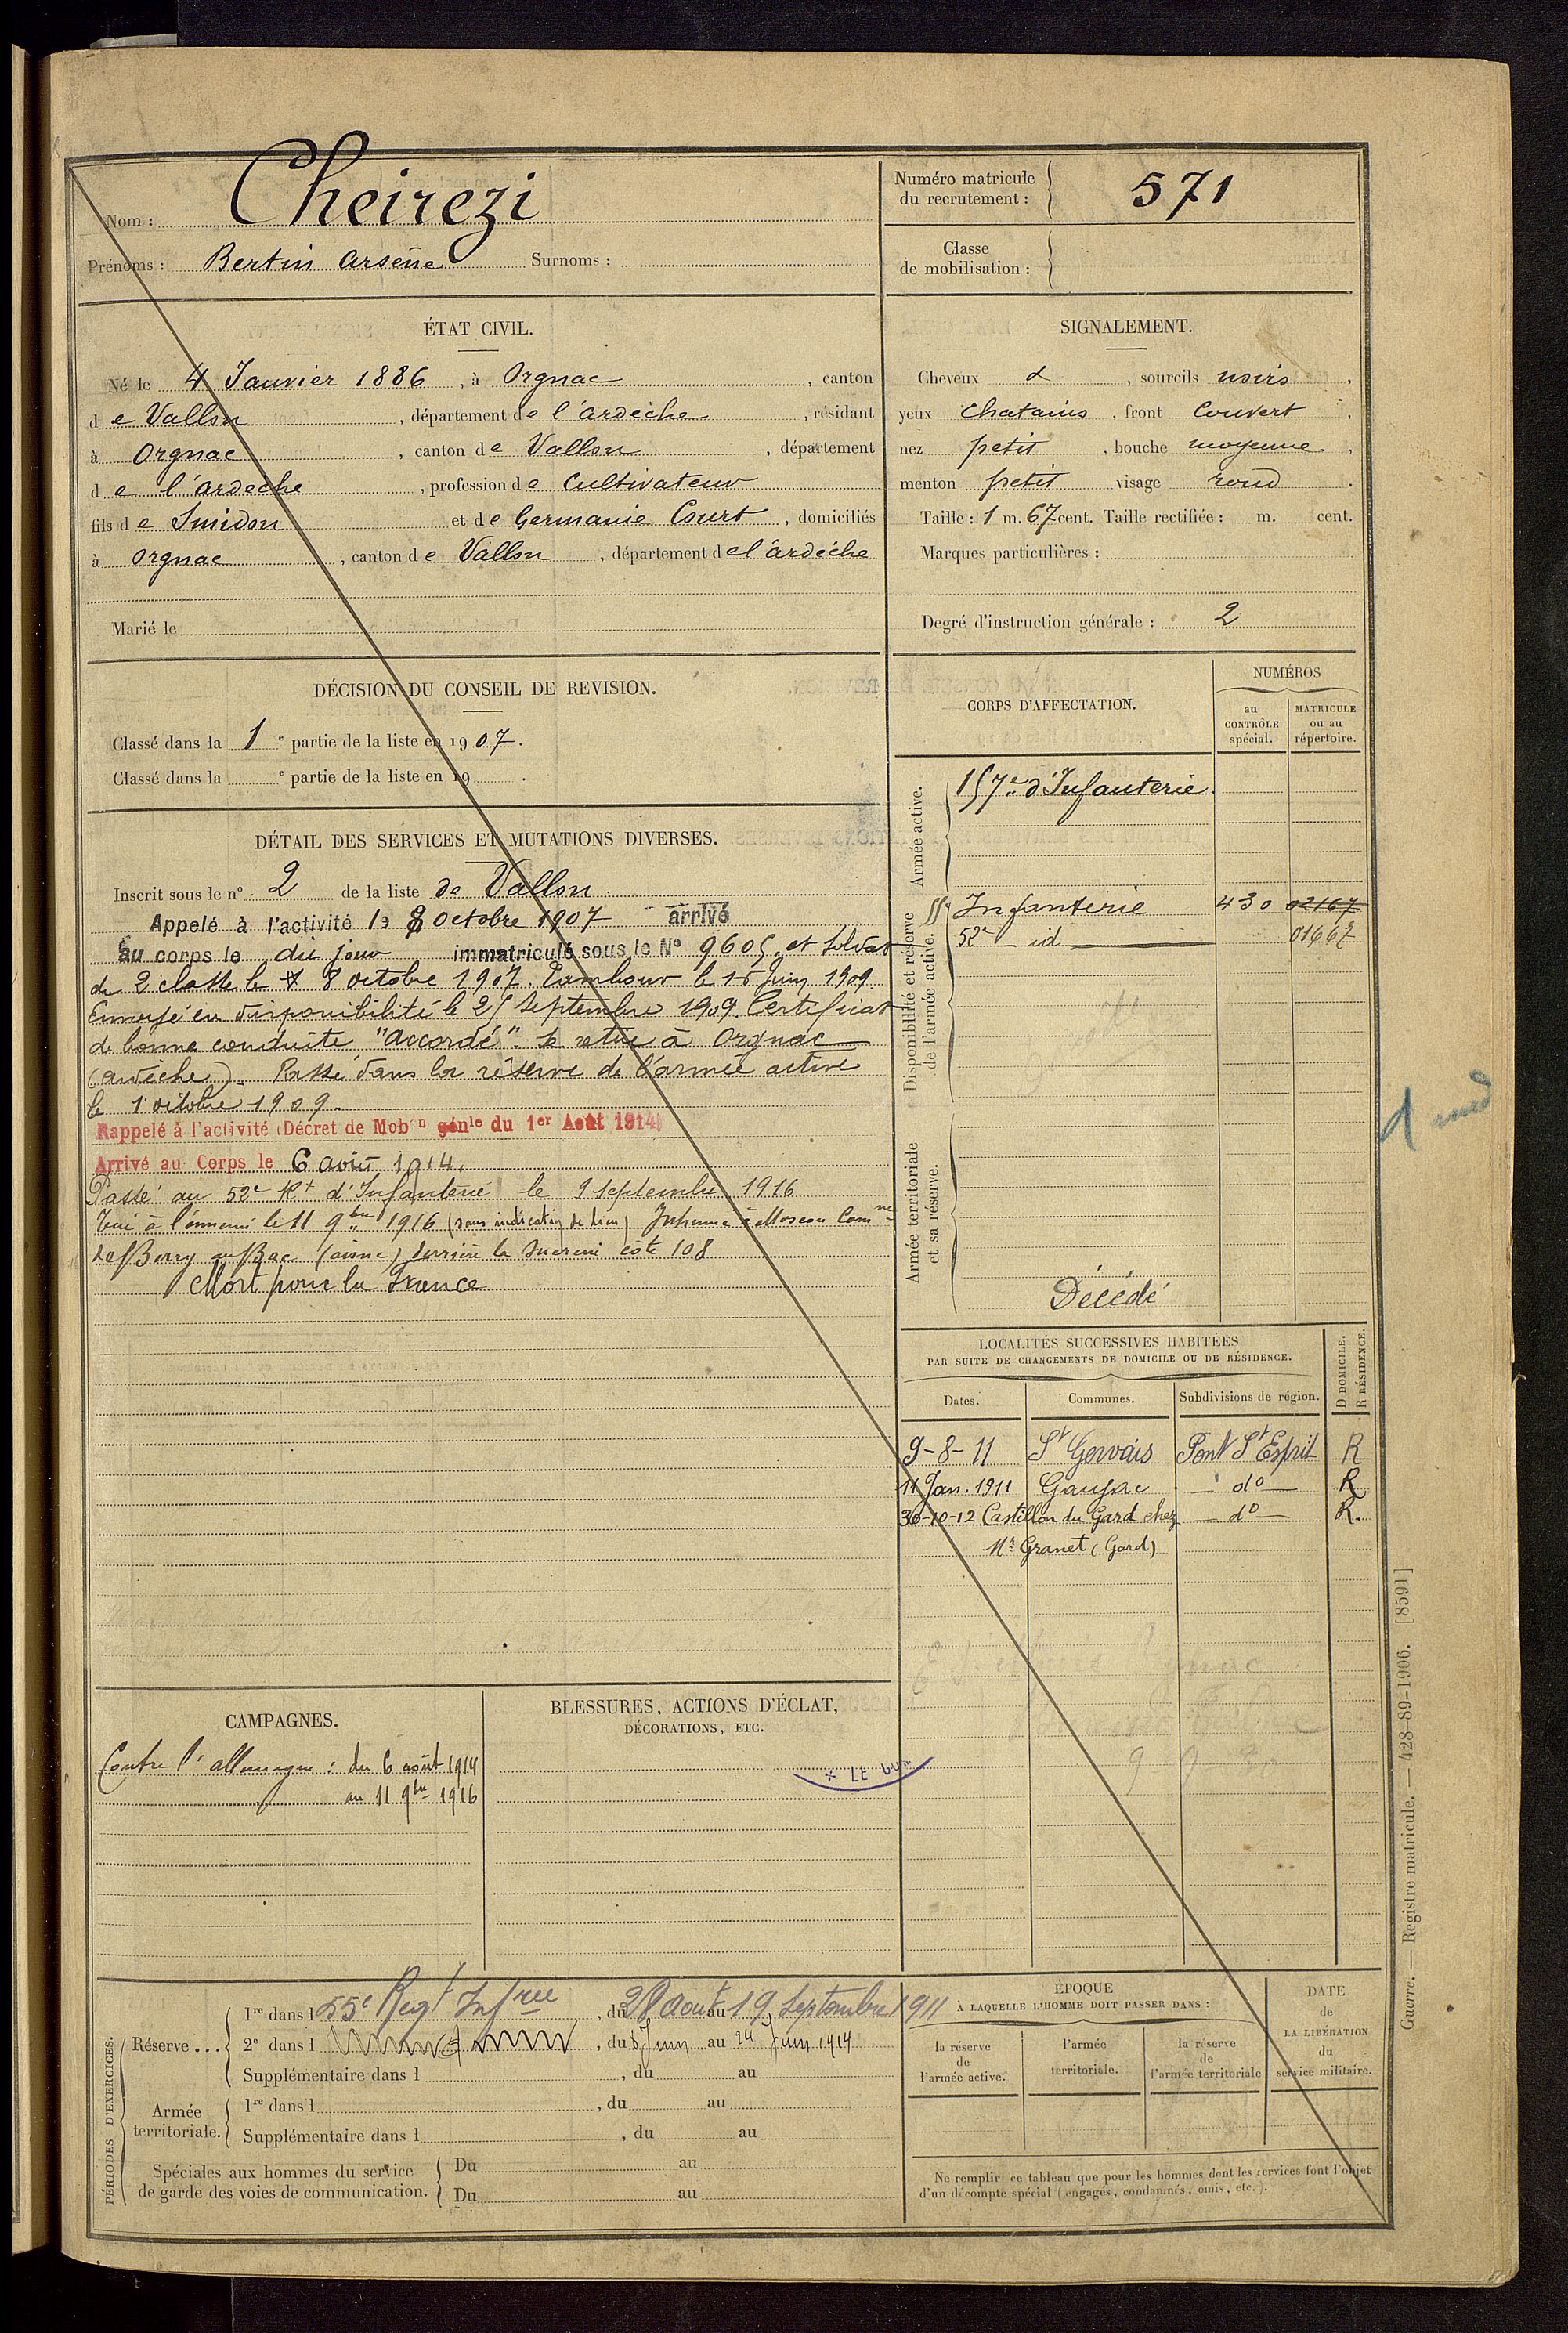 Nom : Cheirezi
Prénoms : Bertin Arsène Surnoms :
Numéro matricule du recrutement : 571
Classe de mobilisation :
ÉTAT CIVIL.
Né le 4 Janvier 1886, à Orgnac, canton
de Vallon, département de l'ardèche, résidant
à Orgnac, canton de Vallon, département
de l'ardeche, profession de Cultivateur
fils de et de Germanie Court, domiciliés
à Orgnac, canton de Vallon, département de l'ardéche
Marié le
SIGNALEMENT.
Cheveux &, sourcils noirs,
yeux Chatains, front Couvert,
nez petit, bouche moyenne,
menton petit visage rond.
Taille : 1 m. 67 cent. Taille rectifiée : m. cent.
Marques particulières :
Degré d'instruction générale : 2
DÉCISION DU CONSEIL DE REVISION.
Classé dans la 1e partie de la liste en 1907.
Classé dans la e partie de la liste en 19 .
DÉTAIL DES SERVICES ET MUTATIONS DIVERSES.
Inscrit sous le n° 2 de la liste de Vallon.
Appelé à l'activité le 8 octobre 1907 arrivé
au corps le du jour immatriculé sous le N° 9605, et soldat
de 2 classe le 8 octobre 1907. Tambour le 15 Juin 1909.
Envoyé en disponibilité le 25 Septembre 1909. Certificat
de bonne conduite "Accordé". Se retire à Orgnac
(ardèche). Passé dans la réserve de l'armée active
le 1 octobre 1909.
Rappelé à l'activité (Décret de Mobn génle du 1er Août 1914)
Arrivé au Corps le 6 août 1914.
Passé au 52e Rt d'Infanterie le 9 septembre 1916
Tué à l'ennemi le 11 9bre 1916 (sans indication de lieu) Inhumé à Moscou Comne
de Berry au Bac (aisne) derrière la sucrerie côte 108
Mort pour la France
CORPS D'AFFECTATION.
NUMÉROS
au CONTRÔLE spécial.
MATRICULE ou au répertoire.
Armée active.
157e d'Infanterie.
Disponibilité et réserve de l'armée active.
55e Infanterie 430 02167
52e id 01667
Armée territoriale et sa réserve.
Décédé
1 med
LOCALITÉS SUCCESSIVES HABITÉES
PAR SUITE DE CHANGEMENTS DE DOMICILE OU DE RÉSIDENCE.
Dates. Communes. Subdivisions de région. D DOMICILE. R RÉSIDENCE.
9-8-11 St Gervais Pont St Esprit R
11 Jan. 1911 Gaujac do R
30-10-12 Castillon du Gard chez do R.
Mr Granet (Gard)
CAMPAGNES.
Contre l'allemagne : du 6 août 1914
au 11 9bre 1916
BLESSURES, ACTIONS D'ÉCLAT,
DÉCORATIONS, ETC.
* LE
PÉRIODES D'EXERCICES.
Réserve...
1re dans l 55e Regt Infrie, du 28 Aout au 19 Septembre 1911
2e dans l , du 8 Juin au 24 Juin 1914
Supplémentaire dans l , du au
Armée territoriale.
1re dans l , du au
Supplémentaire dans l , du au
Spéciales aux hommes du service
de garde des voies de communication.
Du au
Du au
ÉPOQUE
À LAQUELLE L'HOMME DOIT PASSER DANS :
la réserve de l'armée active.
l'armée territoriale.
la réserve de l'armée territoriale
DATE de LA LIBÉRATION du service militaire.
Ne remplir ce tableau que pour les hommes dont les services font l'objet
d'un décompte spécial (engagés, condamnés, omis, etc.).
Guerre. — Registre matricule. — 428-89-1906. [8591]